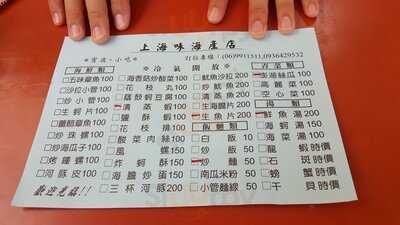 上海味海產店
*宵夜・小吃* ※冷氣開放※ 訂位專線:(06)9911311,0936429532
海鮮類
□五味章魚100
□沙拉小管100
□炒小管100
□生蚵片100
□鹽醋章魚100
□炒珠螺100
□炒海瓜子100
□烤鐘螺100
□河豚皮100
歡迎光臨!!
□海香菇炒酸菜100
□花枝丸100
□蔭鼓蚵豆腐100
□清蒸蝦100
□鹽酥蝦100
□花枝排100
□酸菜肉絲100
□風螺150
□炸蚵酥150
□海膽炒蛋150
□三杯河豚200
□魷魚沙拉200
□炒魷魚200
□清蒸魚200
□生海膽片200
□生魚片200
飯麵類
□白飯10
□炒飯50
□炒麵50
□南瓜米粉50
□小管麵線50
青菜類
□澎湖絲瓜100
□高麗菜100
□空心菜100
湯類
□鮮魚湯200
□海蚵湯150
□海菜湯150
□龍蝦時價
□石斑時價
□螃蟹時價
□干貝時價